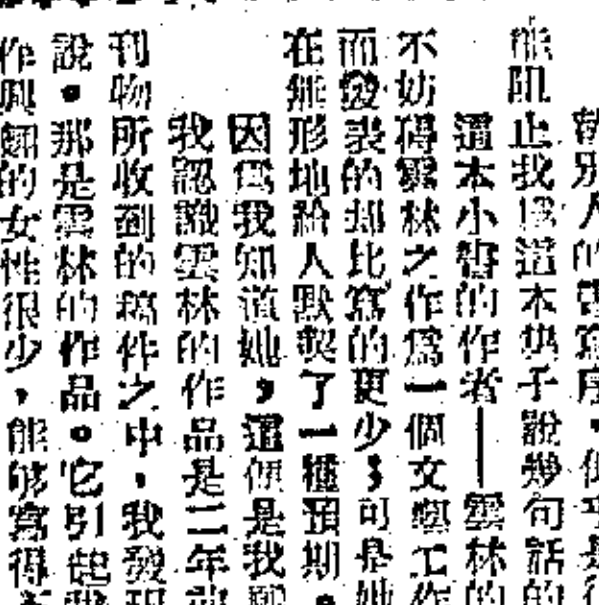 替別人的書寫序，但
能阻止我爲這本集子說幾句話的
這本小書的作者——雲林的
不妨碍雲林之作爲一個文藝工作
而發表的却比寫的更少；可是她
在無形地給人默契了一種預期。
因爲我知道她，這便是我
我認識雲林的作品是二年前
刊物所收到的稿件之中，我發現
說。那是雲林的作品。它引起我
作與趣的女性很少，能够寫得